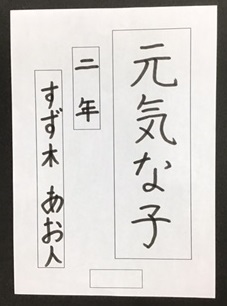 元気な子
二年
すず木 あお人